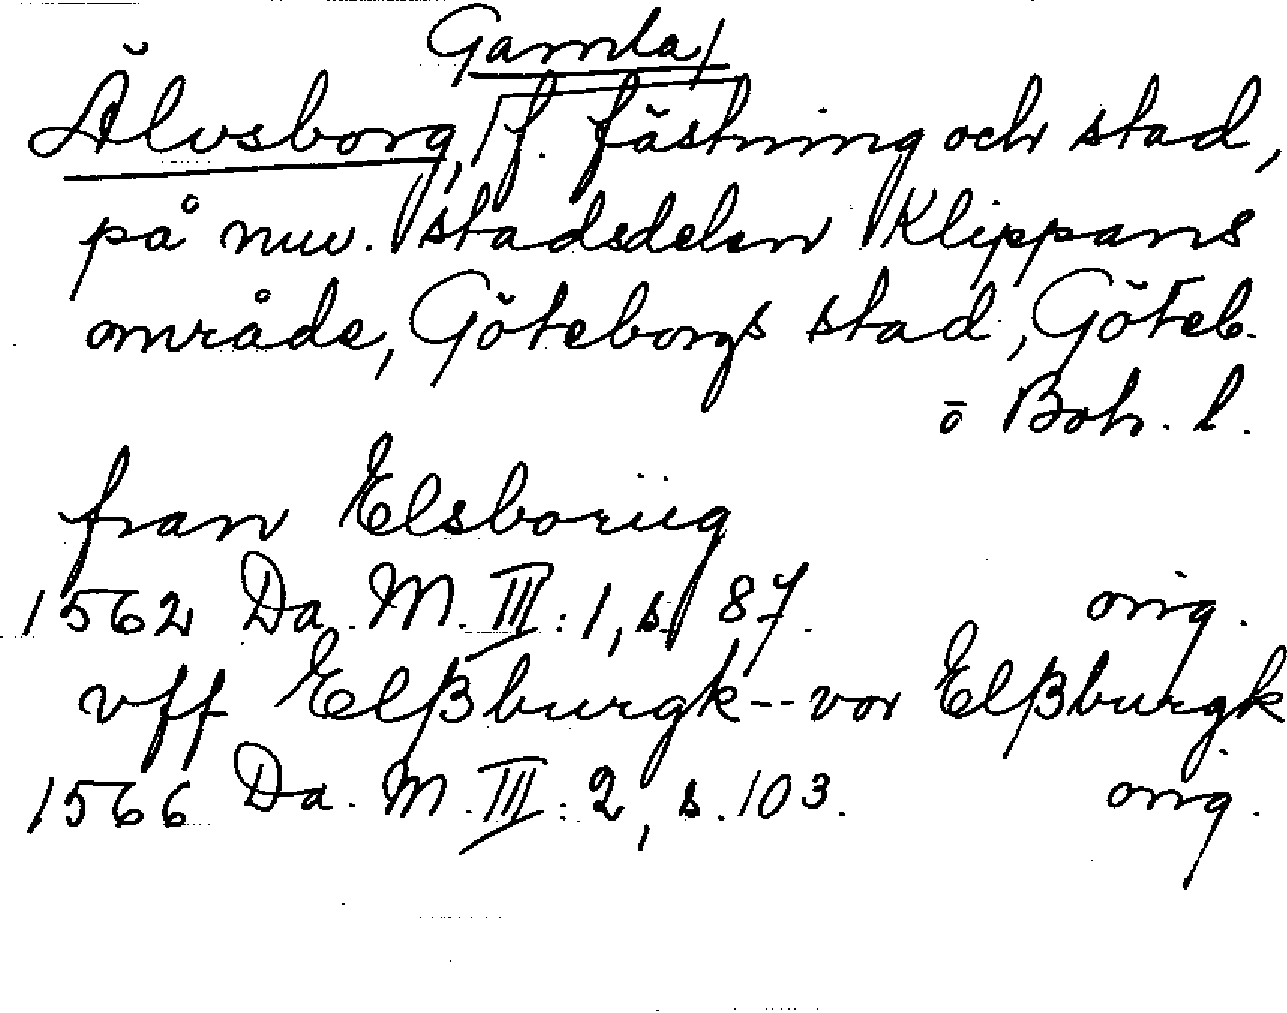 Gamla
Älvsborg, f. fästning och stad,
på nuv. stadsdelen Klippans
område, Göteborgs stad, Göteb.
o Boh. l.
fran Elsborüg
1562 Da. M. III: 1, s. 87. orig.
vff Elßburgk -- vor Elßburgk
1566 Da. M. III: 2, s. 103. orig.